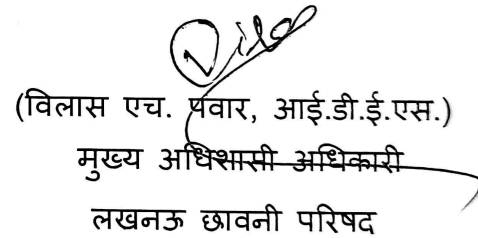 (विलास एच. पवार, आई.डी.ई.एस.)
मुख्य अधिशासी अधिकारी
लखनऊ छावनी परिषद